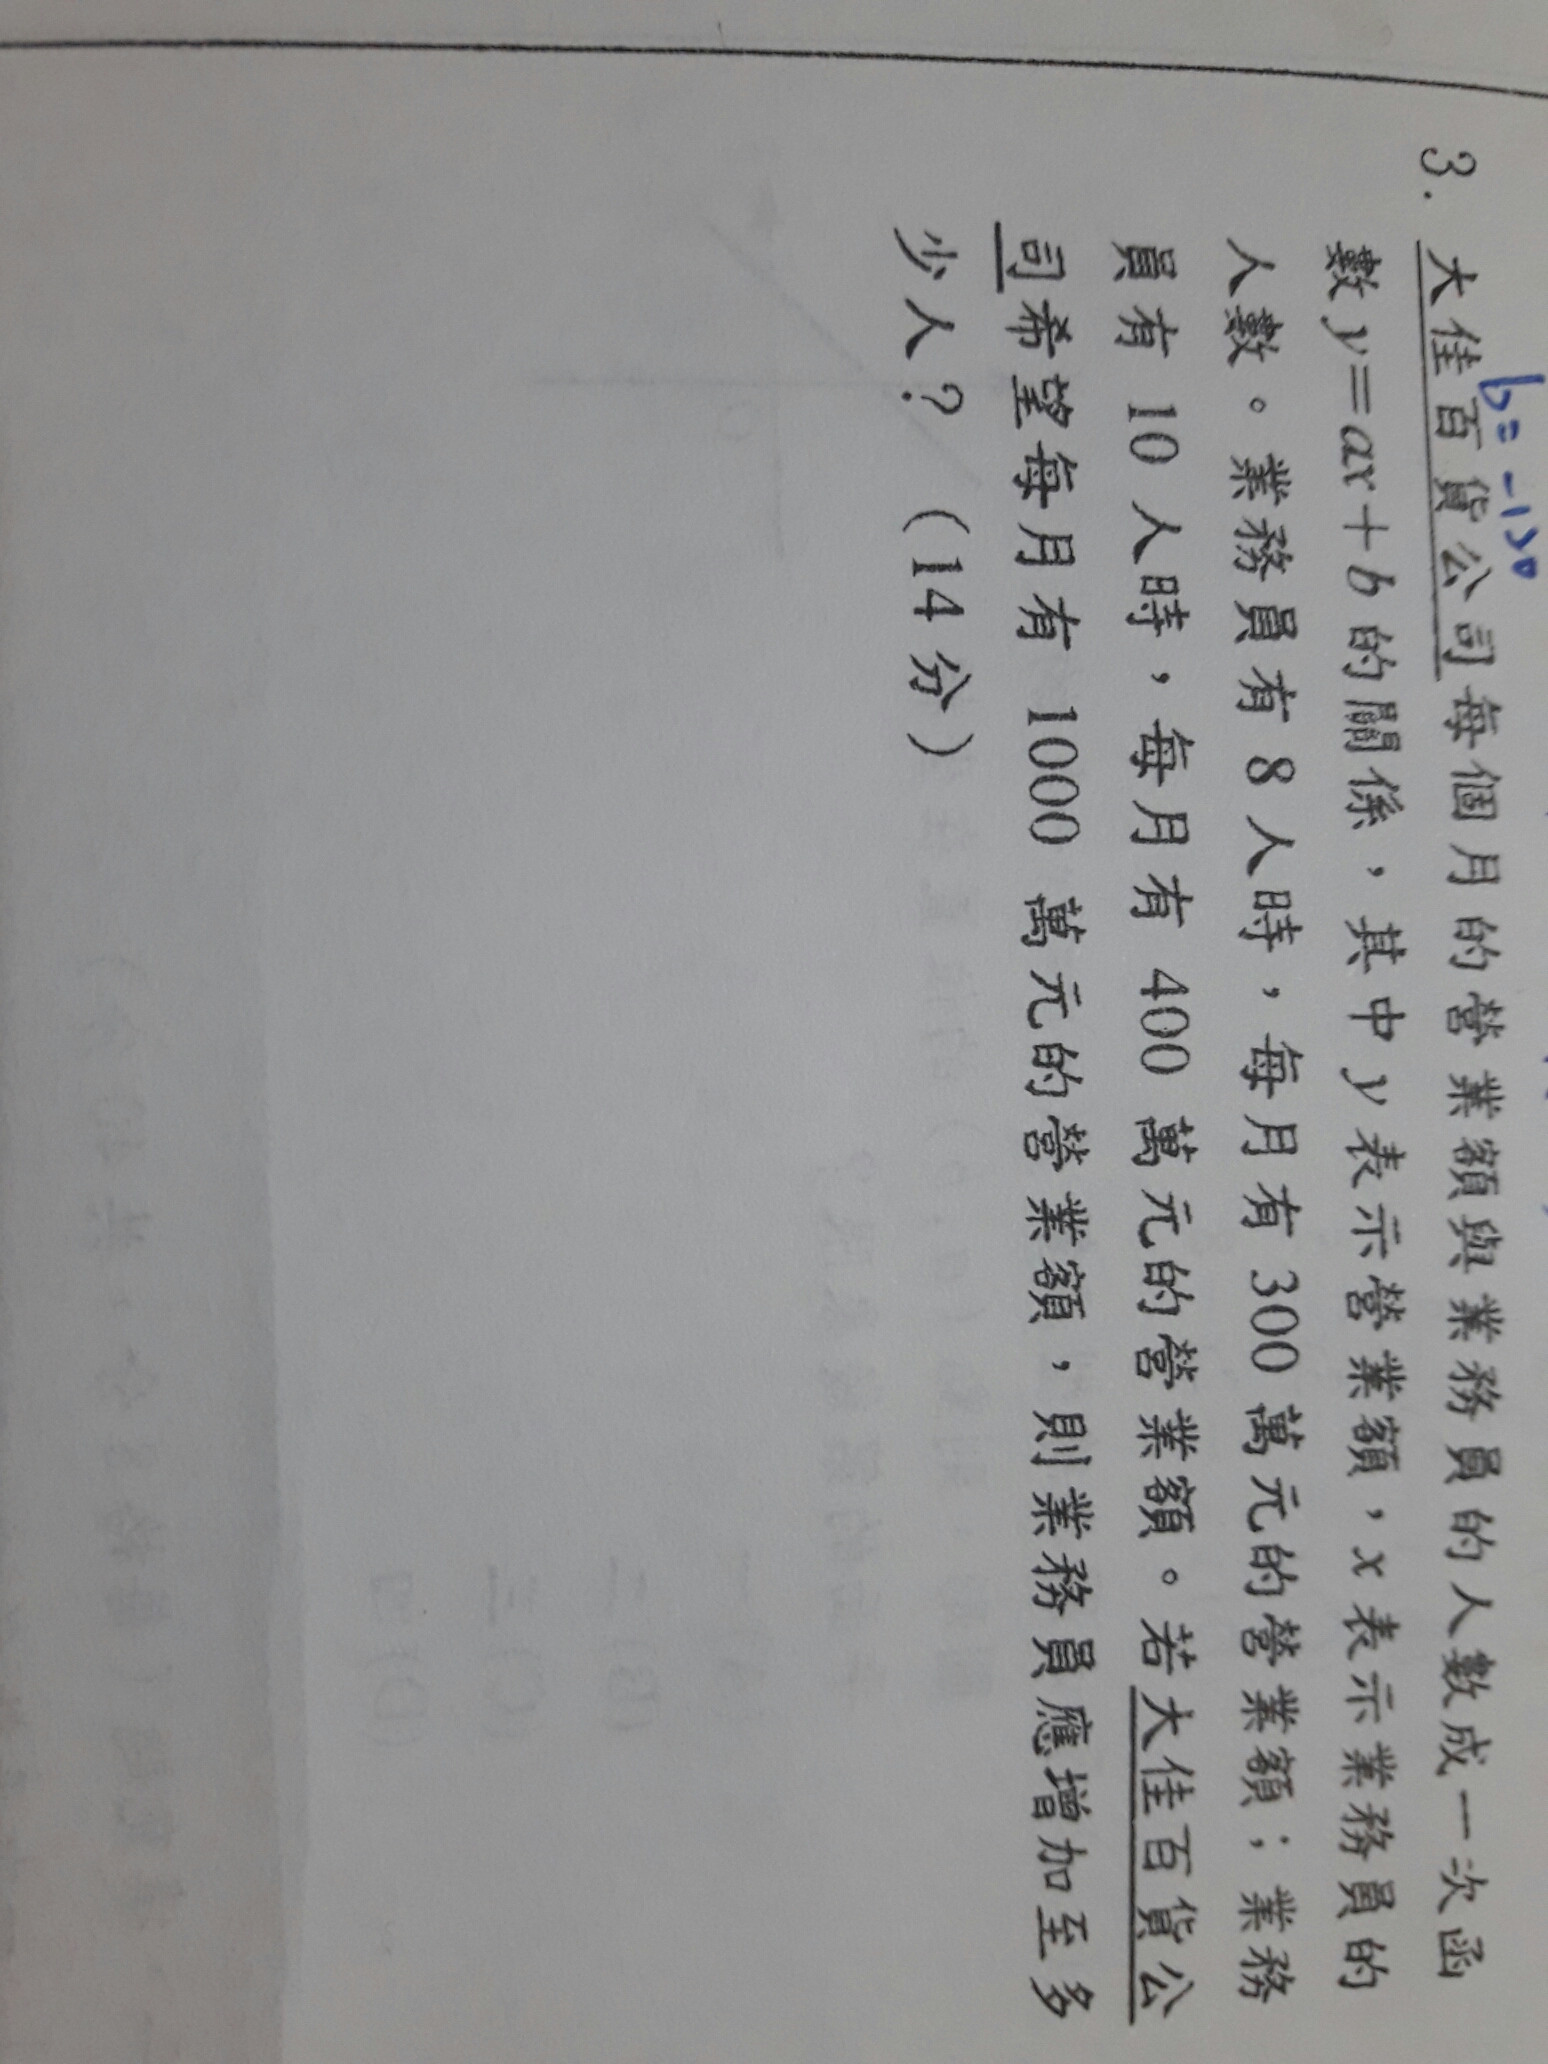 b=-100
3. 大佳百貨公司每個月的營業額與業務員的人數成一次函
數 y=ax+b 的關係，其中 y 表示營業額，x 表示業務員的
人數。業務員有 8 人時，每月有 300 萬元的營業額；業務
員有 10 人時，每月有 400 萬元的營業額。若大佳百貨公
司希望每月有 1000 萬元的營業額，則業務員應增加至多
少人？（14 分）